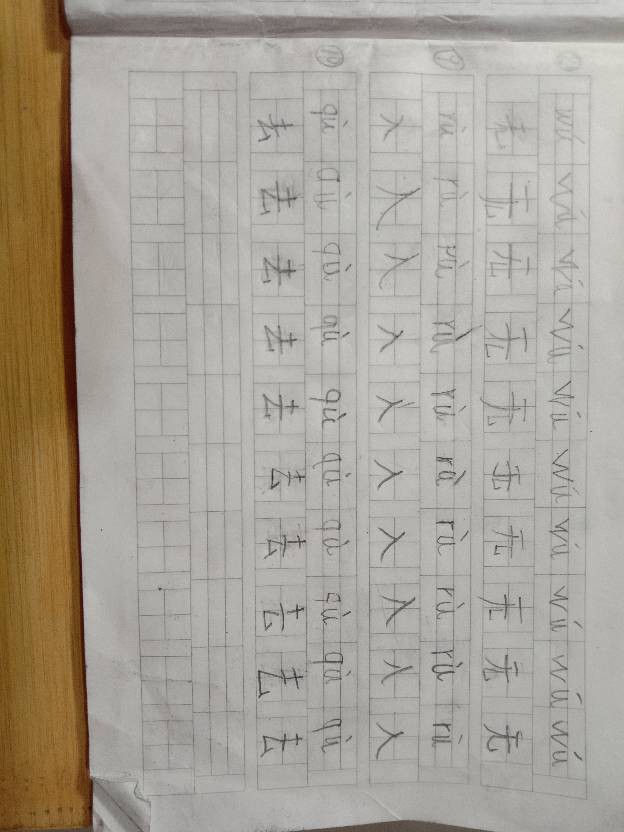 wú wú wú wú wú wú wú wú wú wú
无 无 无 无 无 无 无 无 无 无
rù rù rù rù rù rù rù rù rù rù
入 入 入 入 入 入 入 入 入 入
qù qù qù qù qù qù qù qù qù qù
去 去 去 去 去 去 去 去 去 去